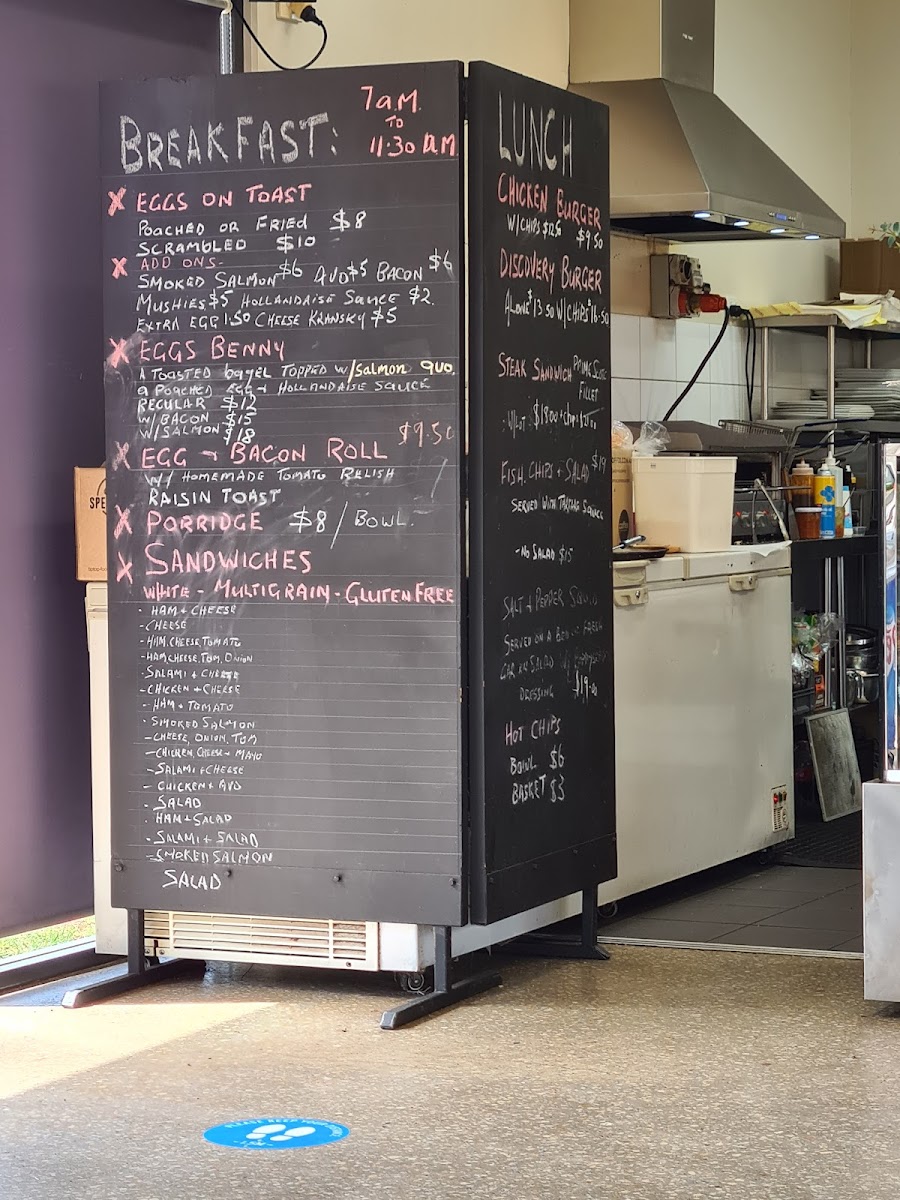 BREAKFAST:
7a.m.
TO
11:30 a.m
X EGGS ON TOAST
POACHED OR FRIED $8
SCRAMBLED $10
X ADD ONS-
SMOKED SALMON $6 AVO $5 BACON $6
MUSHIES $5 HOLLANDAISE SAUCE $2.
EXTRA EGG 1.50 CHEESE KRANSKY $5
X EGGS BENNY
A TOASTED bagel TOPPED w/ Salmon avo,
a POACHED EGG + HOLLANDAISE SAUCE
REGULAR $12
W/ BACON $15
W/ SALMON $18
$9.50
X EGG + BACON ROLL
W/ HOMEMADE TOMATO RELISH
RAISIN TOAST
X PORRIDGE $8 / BOWL.
X SANDWICHES
WHITE - MULTIGRAIN - GLUTEN FREE
- HAM + CHEESE
- CHEESE
- HAM, CHEESE, TOMATO
- HAM CHEESE, TOM, ONION
- SALAMI + CHEESE
- CHICKEN + CHEESE
- HAM + TOMATO
- SMOKED SALMON
- CHEESE, ONION, TOM
- CHICKEN, CHEESE + MAYO
- SALAMI + CHEESE
- CHICKEN + AVO
- SALAD
- HAM + SALAD
- SALAMI + SALAD
- SMOKED SALMON
SALAD
LUNCH
CHICKEN BURGER
W/CHIPS $12.50 $9.50
DISCOVERY BURGER
ALONE $13.50 W/CHIPS $16.50
STEAK SANDWICH PRIME
FILLET
$18.00
FISH, CHIPS + SALAD $19
SERVED WITH TARTARE SAUCE
- NO SALAD $15
SALT + PEPPER SQUID
SERVED ON A FRESH
SALAD W/
DRESSING $19.00
HOT CHIPS
BOWL $6
BASKET $3
SPE